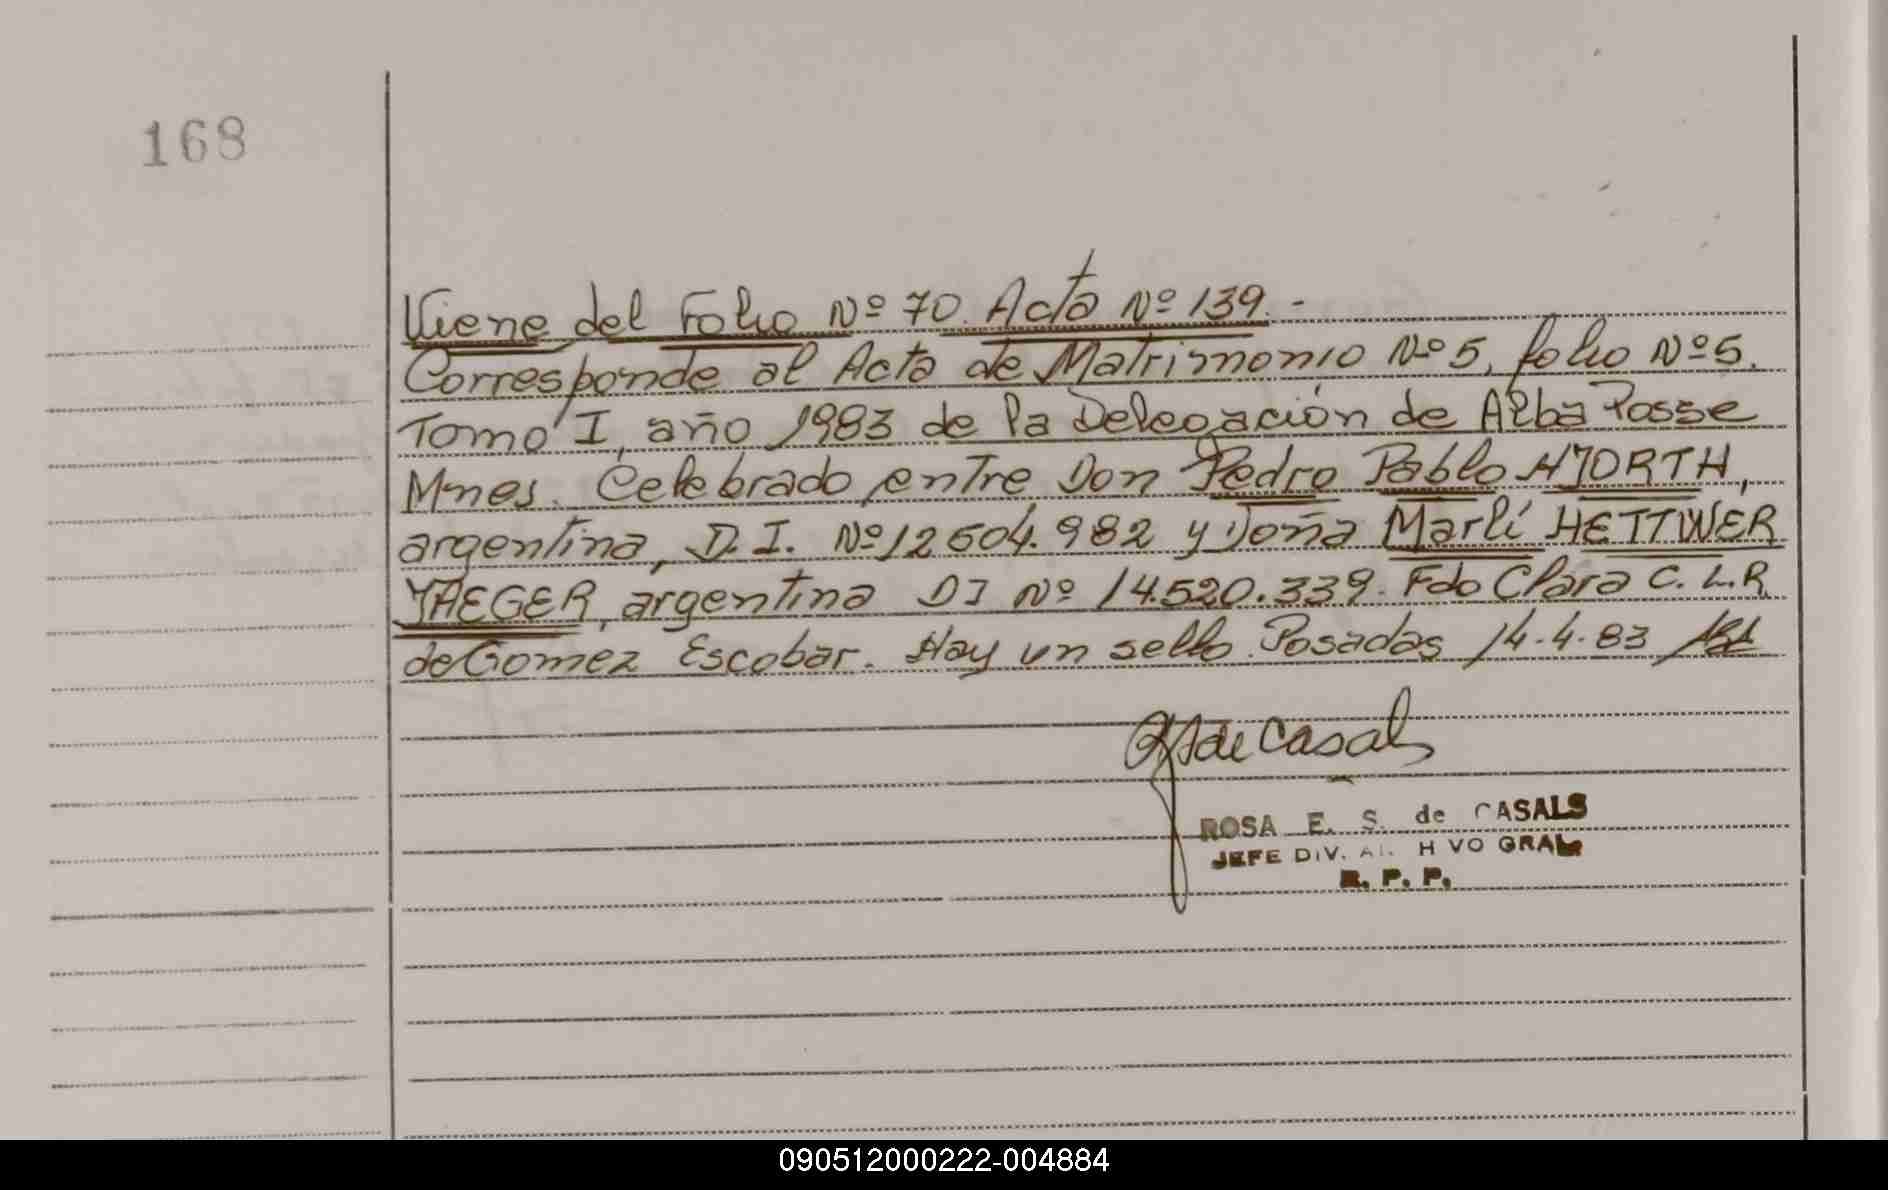 168
Viene del Folio Nº 70. Acta Nº 139.-
Corresponde al Acta de Matrimonio Nº 5, folio Nº 5.
Tomo I, año 1983 de la Delegación de Alba Posse
Mnes. Celebrado entre Don Pedro Pablo HJORTH,
argentina, D.I. Nº 12.604.982 y Doña Marlí HETTWER
YAEGER, argentina DI Nº 14.520.339. Fdo Clara C. L. R.
de Gomez Escobar. Hay un sello. Posadas 14-4-83
de Casals
ROSA E. S. de CASALS
JEFE DIV. A H VO GRAL
R. P. P.
090512000222-004884